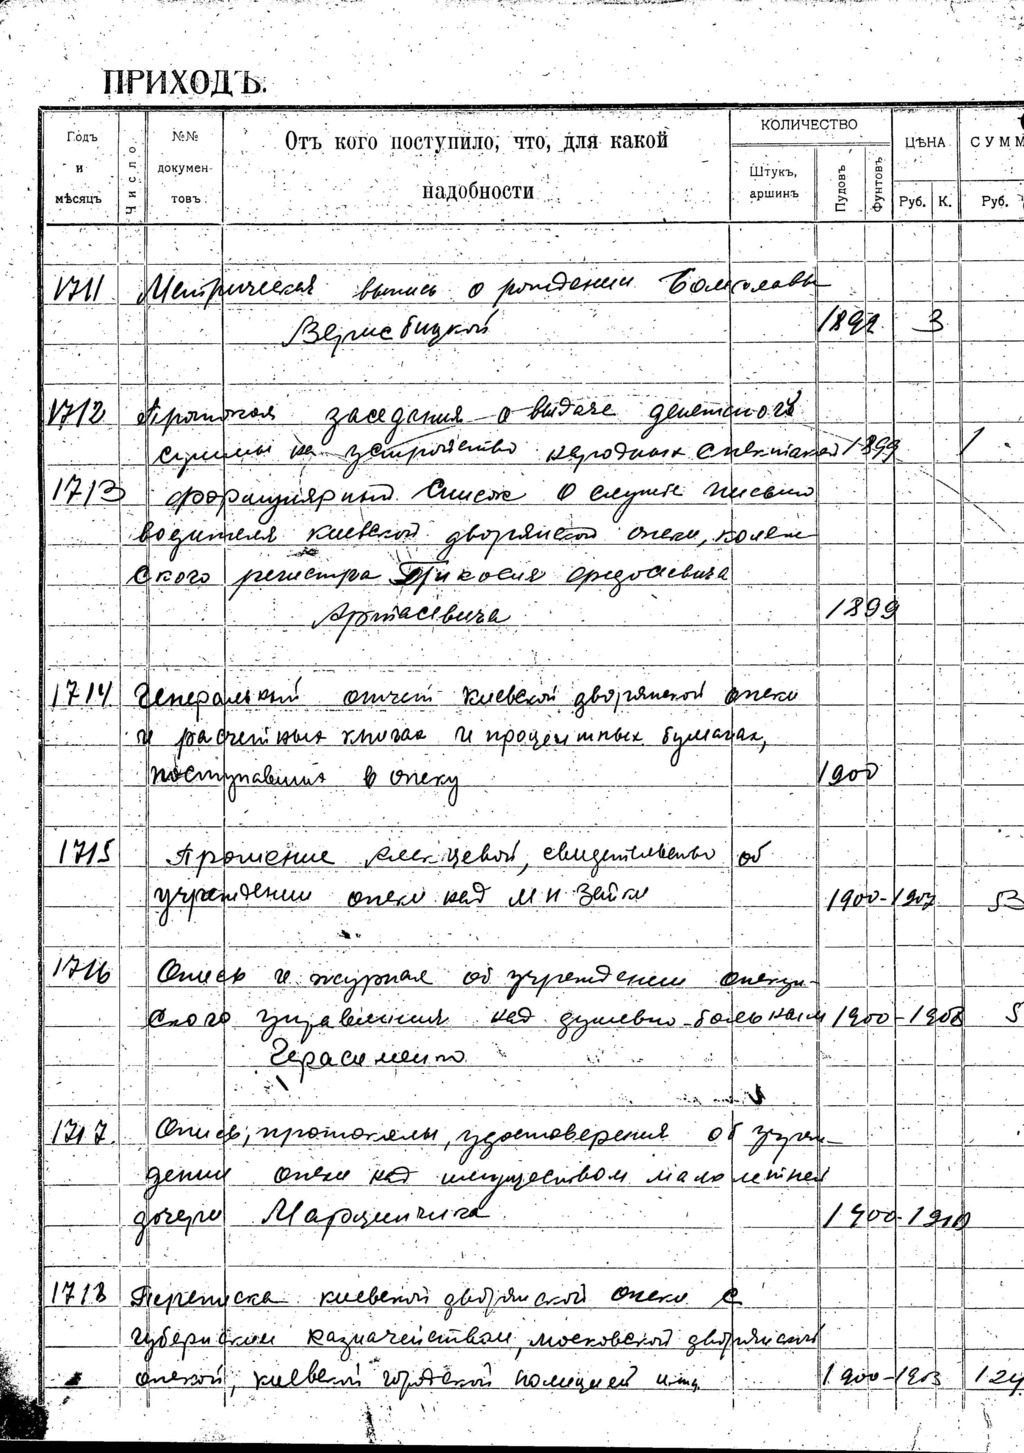 ПРИХОДЪ.
Годъ и мѣсяцъ
Число
№№ документовъ
Отъ кого поступило, что, для какой надобности
КОЛИЧЕСТВО
Штукъ, аршинъ
Пудовъ
Фунтовъ
ЦѢНА
Руб. К.
СУММ
Руб.
1711 Метрическая выпись о рождении Болеславы
1892 3
1712 Протокол заседания о выдаче денежной
суммы на устройство народных спектаклей 1899 1
1713 Формулярный список о службе письмо
водителя киевской дворянской опеки, коллеж
ского регистра
Арташевича 1899
1714 Генеральный отчет киевской дворянской опеки
и расчетных книгах и процентных бумагах,
поступавших в опеку 1900
1715 Прошение свидетельство об
учреждении опеки над М Н Зейки 1900-1907 53
1716 Опись и журнал об учреждении опекун-
ского управления над душевно-больным 1900-1908 5
Герасименко
1717. Опись, протоколы, удостоверения об учреж-
дении опеки над имуществом малолетней
дочери Марцинчика 1900-1910
1718 Переписка киевской дворянской опеки с
губернским казначейством, московской дворянской
опекой, киевской городской полицией и др. 1900-1903 124